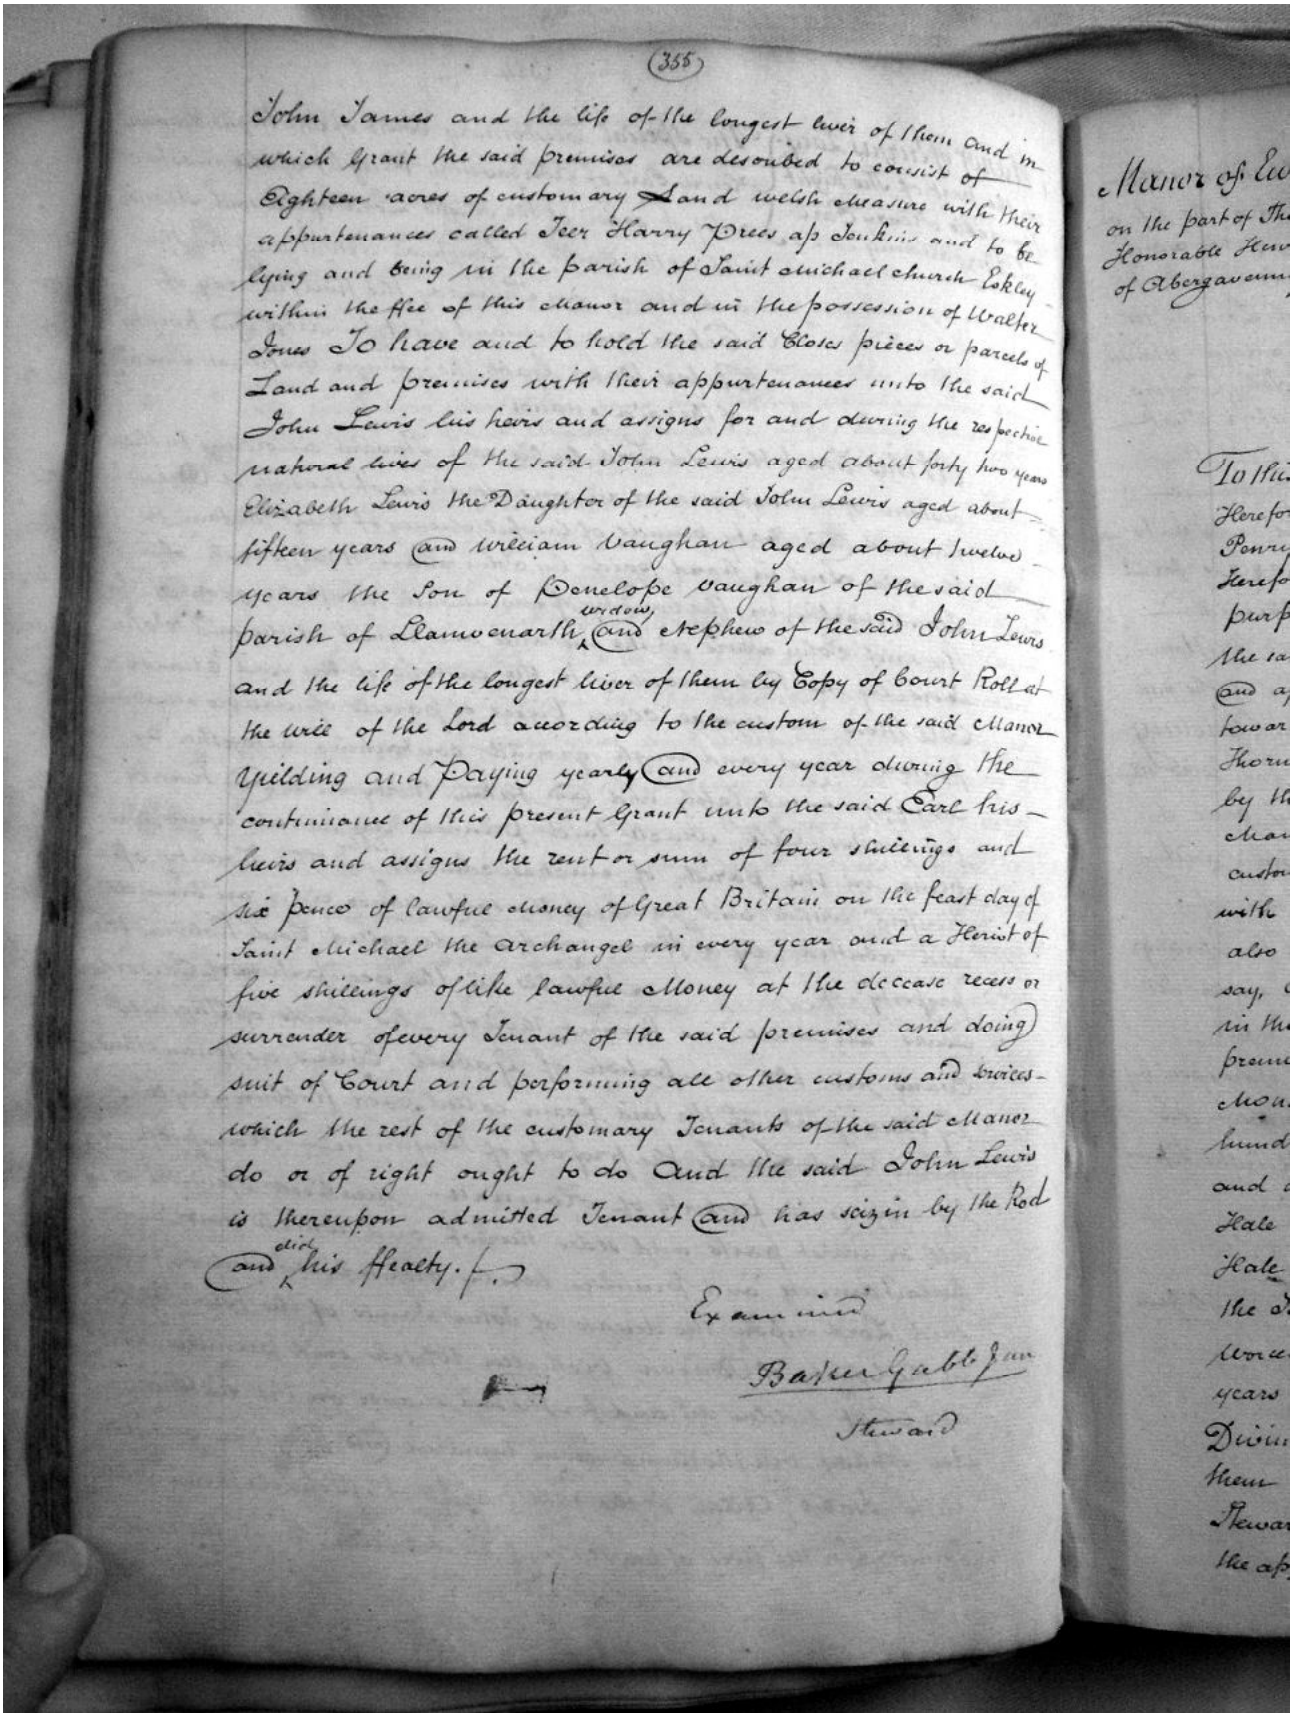 355
John James and the life of the longest liver of them and in
which Grant the said premises are described to consist of
Eighteen acres of customary Land welsh Measure with their
appurtenances called Teer Harry Prees ap Jenkins and to be
lying and being in the parish of Saint Michael church Eskley
within the ffee of this Manor and in the possession of Walter
Jones To have and to hold the said Closes pieces or parcels of
Land and premises with their appurtenances unto the said
John Lewis his heirs and assigns for and during the respective
natural lives of the said John Lewis aged about forty two years
Elizabeth Lewis the Daughter of the said John Lewis aged about
fifteen years and William Vaughan aged about twelve
years the Son of Penelope Vaughan of the said
widow,
parish of Llanwenarth ^ and Nephew of the said John Lewis
and the life of the longest liver of them by Copy of Court Roll at
the will of the Lord according to the custom of the said Manor
Yielding and Paying yearly and every year during the
continuance of this present Grant unto the said Earl his
heirs and assigns the rent or sum of four shillings and
six pence of lawful Money of Great Britain on the feast day of
Saint Michael the Archangel in every year and a Heriot of
five shillings of like lawful Money at the decease recess or
surrender of every Tenant of the said premises and doing
suit of Court and performing all other customs and services
which the rest of the customary Tenants of the said Manor
do or of right ought to do And the said John Lewis
is thereupon admitted Tenant and has seizin by the Rod
did
and ^ his ffealty.
Examined
Baker Gabb Jun
Steward
Manor of
on the part of
Honorable
of
To this
the
and
by the
with
also
say,
in the
and
Hale
Hale
the
years
them
the